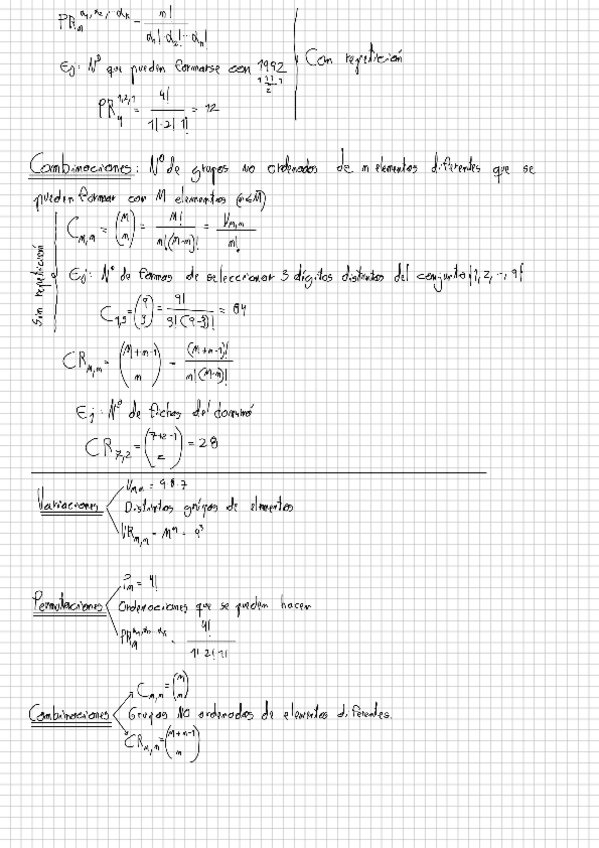 PR_n^{α₁, α₂, ... αₙ} = n! / (α₁! · α₂! ··· αₙ!)
Ej: Nº que pueden formarse con 1992
1 2 1
PR_4^{1,2,1} = 4! / (1! · 2! · 1!) = 12
Con repetición
Combinaciones: Nº de grupos no ordenados de n elementos diferentes que se
pueden formar con M elementos (n≤M)
Sin repetición
C_{M,n} = (M n) = M! / (n!(M-n)!) = V_{M,n} / n!
Ej: Nº de formas de seleccionar 3 dígitos distintos del conjunto {1, 2, ··, 9}
C_{9,3} = (9 3) = 9! / (3!(9-3)!) = 84
CR_{M,n} = (M+n-1 n) = (M+n-1)! / (n!(M-n)!)
Ej: Nº de fichas del dominó
CR_{7,2} = (7+2-1 2) = 28
V_{M,n} = 9·8·7
Variaciones Distintos grupos de elementos
VR_{M,n} = Mⁿ = 9³
P_n = 4!
Permutaciones Ordenaciones que se pueden hacer
PR_n^{α₁, α₂ ·· αₙ} = 4! / (1! · 2! · 1!)
C_{M,n} = (M n)
Combinaciones Grupos NO ordenados de elementos diferentes.
CR_{M,n} = (M+n-1 n)